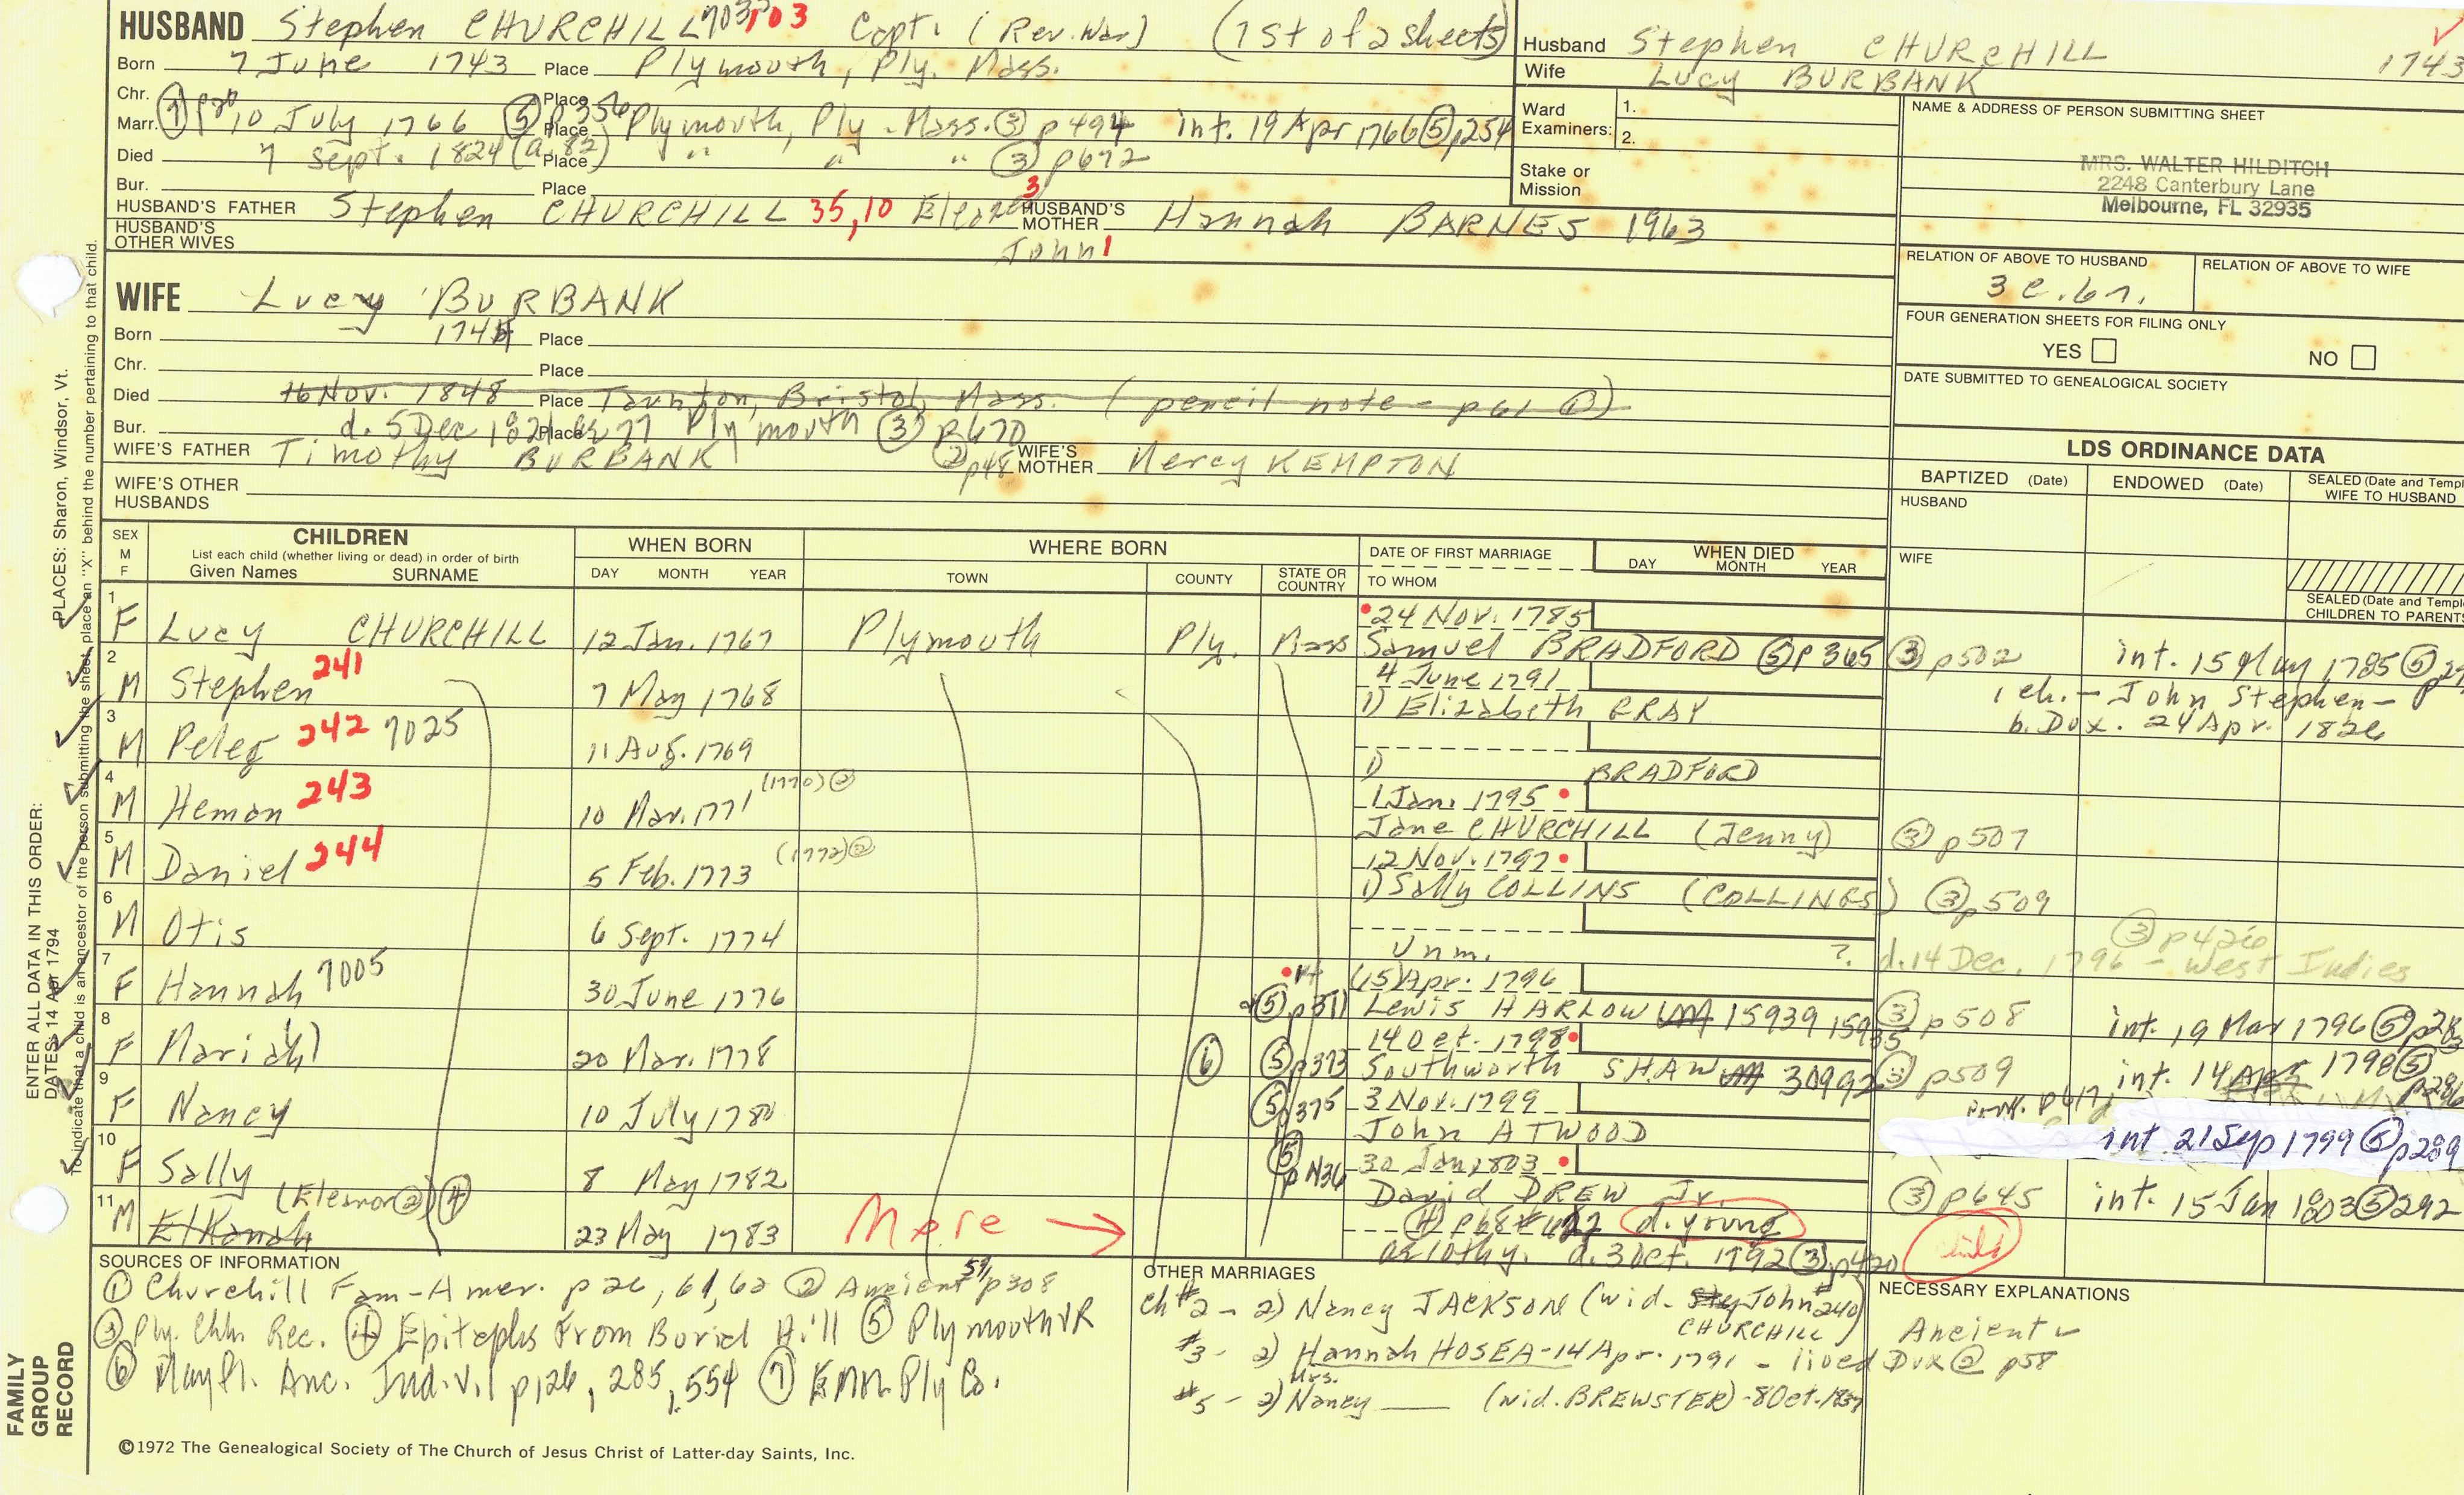 HUSBAND Stephen CHURCHILL 103 Capt. (Rev. War) (1st of 2 sheets)
Born 7 June 1743 Place Plymouth, Ply. Mass.
Chr. Place
Marr. ⑦ p20 10 July 1766 ⑤ p356 Place Plymouth, Ply. Mass. ③ p494 int. 19 Apr 1766 ⑤ p254
Died 7 Sept. 1824 (a. 82) Place " " " ③ p672
Bur. Place
HUSBAND'S FATHER Stephen CHURCHILL 35,10 3 HUSBAND'S MOTHER Hannah BARNES 1963
HUSBAND'S OTHER WIVES John 1
Husband Stephen CHURCHILL 1743
Wife Lucy BURBANK
Ward Examiners: 1.
2.
Stake or Mission
NAME & ADDRESS OF PERSON SUBMITTING SHEET
MRS. WALTER HILDITCH
2248 Canterbury Lane
Melbourne, FL 32935
RELATION OF ABOVE TO HUSBAND RELATION OF ABOVE TO WIFE
3 c. 6r.
FOUR GENERATION SHEETS FOR FILING ONLY
YES NO
DATE SUBMITTED TO GENEALOGICAL SOCIETY
WIFE Lucy BURBANK
Born Place
Chr. Place
Died 16 Nov. 1848 Place Taunton, Bristol, Mass. (pencil note - p61 ①)
Bur. d. 5 Dec Place Plymouth ③ p670
WIFE'S FATHER Timothy BURBANK ② p48 WIFE'S MOTHER Mercy KEMPTON
WIFE'S OTHER HUSBANDS
LDS ORDINANCE DATA
BAPTIZED (Date) ENDOWED (Date) SEALED (Date and Templ
WIFE TO HUSBAND
HUSBAND
WIFE
SEALED (Date and Templ
CHILDREN TO PARENTS
SEX M F CHILDREN WHEN BORN WHERE BORN DATE OF FIRST MARRIAGE WHEN DIED
List each child (whether living or dead) in order of birth
Given Names SURNAME DAY MONTH YEAR TOWN COUNTY STATE OR COUNTRY TO WHOM DAY MONTH YEAR
1 F Lucy CHURCHILL 12 Jan. 1767 Plymouth Ply. Mass 24 Nov. 1785
Samuel BRADFORD ⑤ p365 ③ p502 int. 15 May 1785 ⑤
2 M Stephen 241 7 May 1768 4 June 1791
1) Elizabeth GRAY 1 ch. - John Stephen -
b. Dux. 24 Apr. 1826
3 M Peleg 242 7025 11 Aug. 1769
1) BRADFORD
4 M Heman 243 10 Mar. 1771 (1770) ② 1 Jan. 1795
Jane CHURCHILL (Jenny) ③ p507
5 M Daniel 244 5 Feb. 1773 (1772) ② 12 Nov. 1797
1) Sally COLLINS (COLLINGS) ③ p509
6 M Otis 6 Sept. 1774
Unm. ? d. 14 Dec. 1796 - West Indies ③ p426
7 F Hannah 7005 30 June 1776 (15) Apr. 1796
⑤ p311 Lewis HARLOW 15939 ③ p508 int. 19 Mar 1796 ⑤
8 F Mariah 20 Mar. 1778 14 Oct. 1798
⑥ ⑤ p373 Southworth SHAW 30992 ③ p509 int. 14 Apr 1798 ⑤ p286
9 F Nancy 10 July 1780 ⑤ 375 3 Nov. 1799
John ATWOOD int 21 Sep 1799 ⑤ p289
10 F Sally 8 May 1782 ⑤ 30 Jan 1803
David DREW Jr. ③ p645 int. 15 Jan 1803 ⑤ 292
11 M Elkanah (Eleanor ②) ④ 23 May 1783 More → ④ d. young child
d. 3 Oct. 1792 ③ p420
SOURCES OF INFORMATION
① Churchill Fam-Amer. p 26, 61, 62 ② Ancient p308
③ Ply. Chh. Rec. ④ Epitaphs From Burial Hill ⑤ Plymouth VR
⑥ Mayfl. Anc. Ind. v.1 p126, 285, 554 ⑦ Ply Co.
OTHER MARRIAGES
ch #2 - 2) Nancy JACKSON (wid. John #240 CHURCHILL)
#3 - 2) Hannah HOSEA - 14 Apr. 1791 - lived Dux ② p58
#5 - 2) Mrs. Nancy ___ (wid. BREWSTER) - 8 Oct. 1837
NECESSARY EXPLANATIONS
Ancient
©1972 The Genealogical Society of The Church of Jesus Christ of Latter-day Saints, Inc.
FAMILY GROUP RECORD
ENTER ALL DATA IN THIS ORDER:
DATES: 14 Apr 1794
PLACES: Sharon, Windsor, Vt.
To indicate that a child is an ancestor of the person submitting the sheet, place an "X" behind the number pertaining to that child.